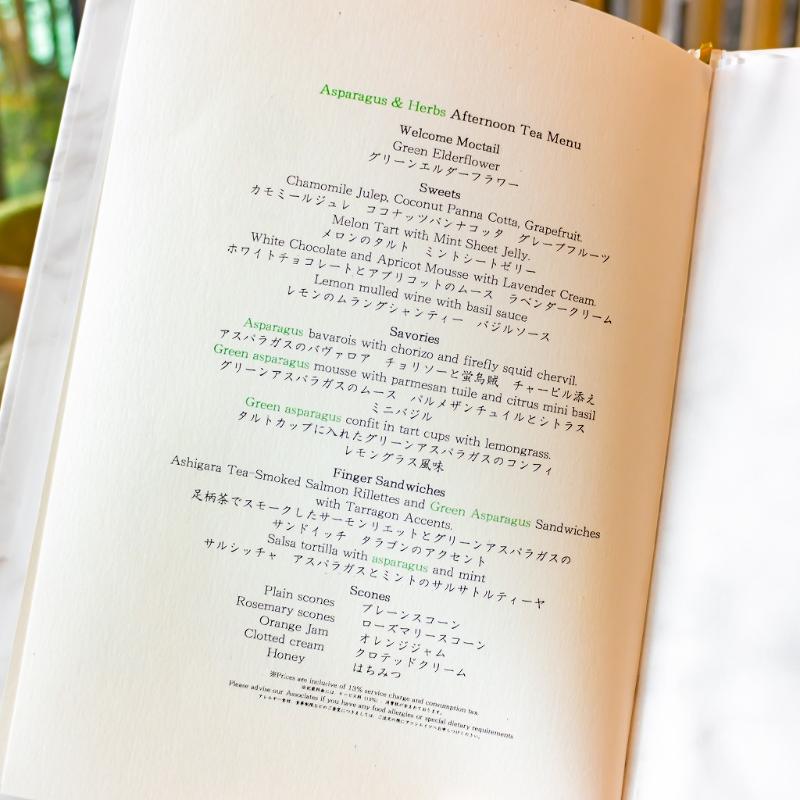 Asparagus & Herbs Afternoon Tea Menu
Welcome Moctail
Green Elderflower
グリーンエルダーフラワー
Sweets
Chamomile Julep, Coconut Panna Cotta, Grapefruit.
カモミールジュレ ココナッツパンナコッタ グレープフルーツ
Melon Tart with Mint Sheet Jelly.
メロンのタルト ミントシートゼリー
White Chocolate and Apricot Mousse with Lavender Cream.
ホワイトチョコレートとアプリコットのムース ラベンダークリーム
Lemon mulled wine with basil sauce
レモンのムラングシャンティー バジルソース
Savories
Asparagus bavarois with chorizo and firefly squid chervil.
アスパラガスのバヴァロア チョリソーと蛍烏賊 チャービル添え
Green asparagus mousse with parmesan tuile and citrus mini basil
グリーンアスパラガスのムース パルメザンチュイルとシトラス
ミニバジル
Green asparagus confit in tart cups with lemongrass.
タルトカップに入れたグリーンアスパラガスのコンフィ
レモングラス風味
Finger Sandwiches
Ashigara Tea-Smoked Salmon Rillettes and Green Asparagus Sandwiches
with Tarragon Accents.
足柄茶でスモークしたサーモンリエットとグリーンアスパラガスの
サンドイッチ タラゴンのアクセント
Salsa tortilla with asparagus and mint
サルシッチャ アスパラガスとミントのサルサトルティーヤ
Scones
Plain scones プレーンスコーン
Rosemary scones ローズマリースコーン
Orange Jam オレンジジャム
Clotted cream クロテッドクリーム
Honey はちみつ
※Prices are inclusive of 13% service charge and consumption tax.
※記載料金には、サービス料（13%）、消費税が含まれております。
Please advise our Associates if you have any food allergies or special dietary requirements
アレルギー食材、食事制限などのご要望につきましては、ご注文の際にアソシエイツへお申しつけください。